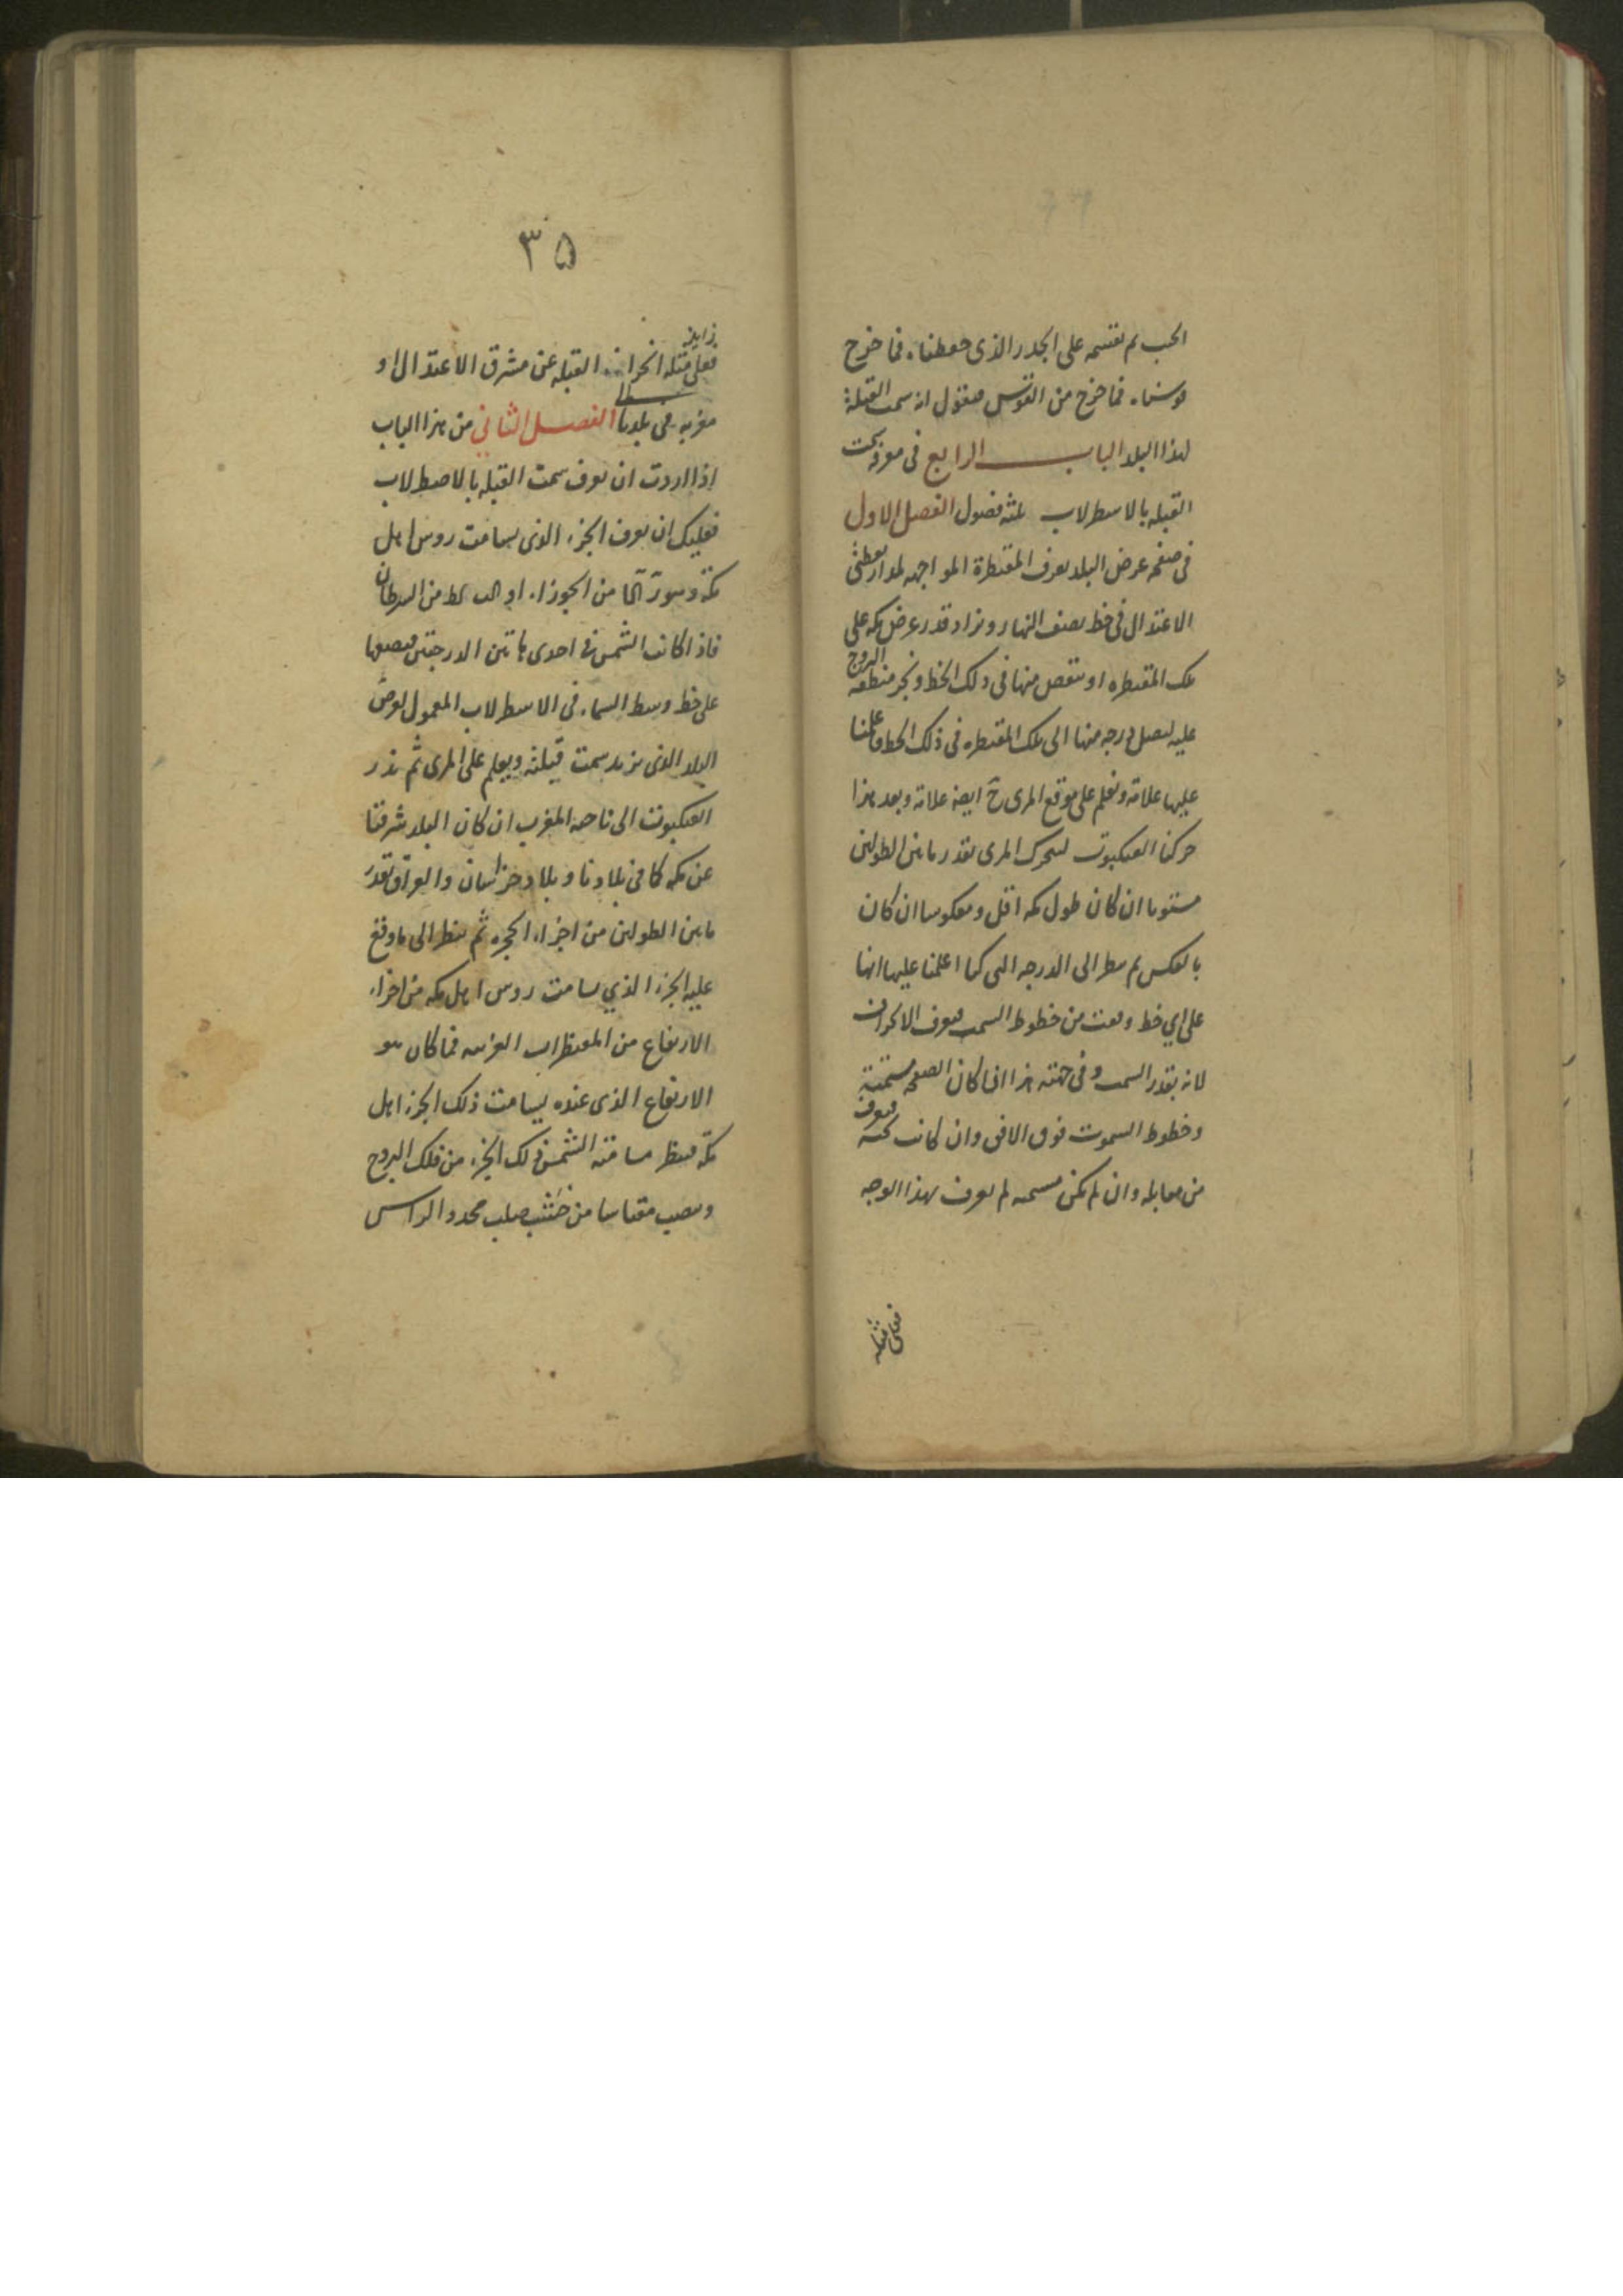 الجيب ثم نقسمه على الجدر الذى حفظناه فما خرج
قوسناه فما خرج من القوس فنقول انه سمت القبلة
لهذا البلد الباب الرابع فى معرفة سمت
القبله بالاسطرلاب ثلثه فصول الفصل الاول
فى صفحه عرض البلد نعرف المقنطرة المواجهه لمدار نقطتى
الاعتدال فى خط نصف النهار و نزاد قدر عرض مكه على
تلك المقنطره او ننقص منها فى ذلك الخط و نجر منطقه البروج
عليه ليصل درجه منها الى تلك المقنطره فى ذلك الخط و علمنا
عليها علامة ونعلم على موقع المرى ح ايضا علامة وبعد هذا
حركنا العنكبوت ليتحرك المرى بقدر ما بين الطولين
مستويا ان كان طول مكه اقل و معكوسا ان كان
بالعكس ثم ننظر الى الدرجه التى كنا اعلمنا عليها انها
على اي خط وقعت من خطوط السمت فنعرف الانحراف
لانه بقدر السمت و فى جهته هذا اذا كان الصفحه مسمتة
وخطوط السموت فوق الافق وان كانت تحته فنعرف
من مقابله وان لم يكن مسمته لم نعرف بهذا الوجه
فعلى مثله
٣٥
زايد
فعلى مثله انحراف القبله عن مشرق الاعتدال او
مغربه فى بلدنا الفصل الثاني من هذا الباب
اذا اردت ان نعرف سمت القبله بالاصطرلاب
فعليك ان نعرف الجزء الذى يسامت روس اهل
مكة و هو من الجوزا او من السرطان
فاذا كانت الشمس فى احدى هاتين الدرجتين فنضعها
على خط وسط السماء فى الاسطرلاب المعمول لعرض
البلد الذى نريد سمت قبلته ونعلم على المرى ثم ندر
العنكبوت الى ناحيه المغرب ان كان البلد شرقيا
عن مكه كما فى بلادنا و بلاد خراسان والعراق بقدر
ما بين الطولين من اجزاء الحجره ثم ننظر الى ما وقع
عليه الجزء الذي يسامت روس اهل مكه من اجزاء
الارتفاع من المقنطرات الغربيه فما كان هو
الارتفاع الذى عنده يسامت ذلك الجزء اهل
مكة فننظر مسامتة الشمس ذلك الجزء من فلك البروج
وننصب مقياسا من خشب صلب محدد الراس